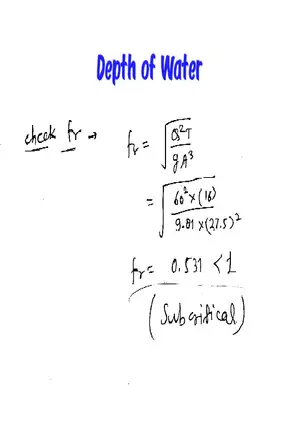 Depth of Water
check fr → fr = √(Q²T / gA³)
= √(60² × (16) / 9.81 × (27.5)²)
fr = 0.531 < 1
(Subcritical)